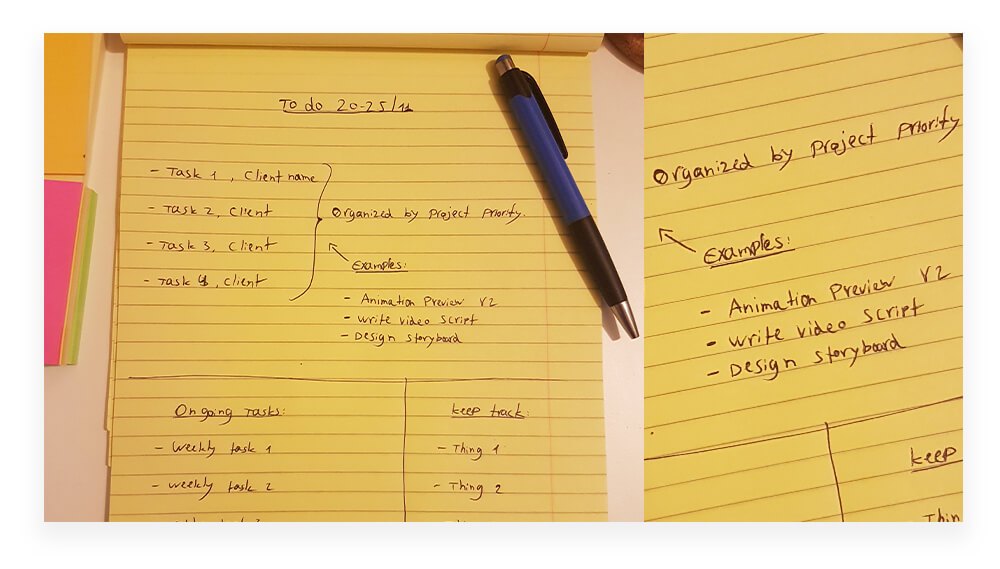 To do 20-25/11
- Task 1, Client name
- Task 2, Client
- Task 3, Client
- Task 4, Client
Organized by Project Priority.
Examples:
- Animation Preview V2
- Write video Script
- Design Storyboard
Ongoing Tasks:
- Weekly task 1
- weekly task 2
keep track:
- Thing 1
- Thing 2
Organized by Project Priority
Examples:
- Animation Preview V2
- write video Script
- Design Storyboard
keep
Thin